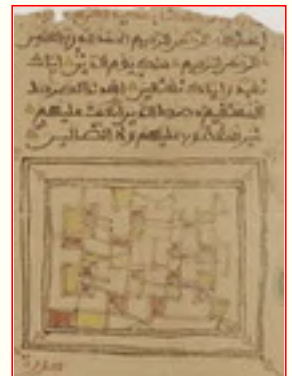 الرحمن الرحيم الحمد لله رب العلمين
الرحمن الرحيم ملك يوم الدين إياك
نعبد وإياك نستعين اهدنا الصراط
المستقيم صراط الذين أنعمت عليهم
غير المغضوب عليهم ولا الضالين